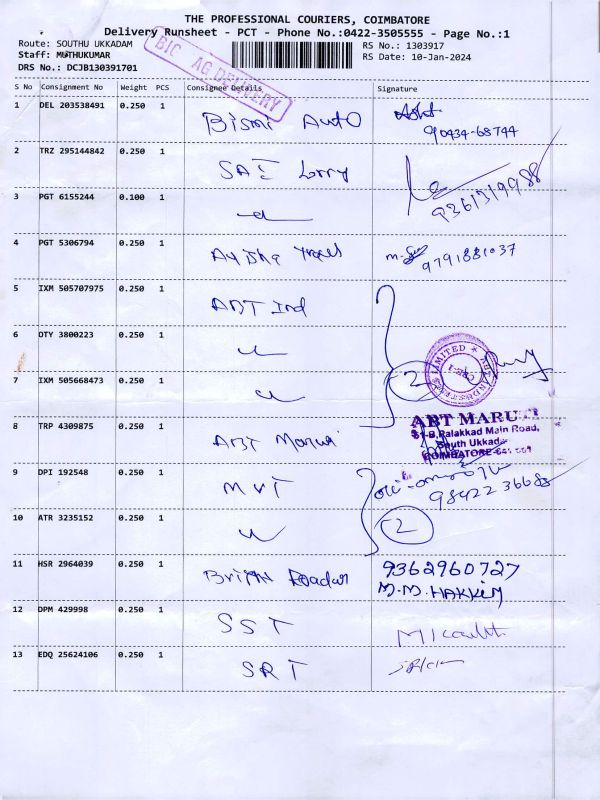 THE PROFESSIONAL COURIERS, COIMBATORE
Delivery Runsheet - PCT - Phone No.:0422-3505555 - Page No.:1
Route: SOUTHU UKKADAM
RS No.: 1303917
Staff: MUTHUKUMAR
RS Date: 10-Jan-2024
DRS No.: DCJB130391701
BIC AG DELIVERY
S No Consignment No Weight PCS Consignee Details Signature
1 DEL 203538491 0.250 1 Bismi Auto
90434-68744
2 TRZ 295144842 0.250 1 SAE Lorry
9361319988
3 PGT 6155244 0.100 1
4 PGT 5306794 0.250 1 Ayisha
9791881037
5 IXM 505707975 0.250 1 ABT Ind
6 OTY 3800223 0.250 1
7 IXM 505668473 0.250 1
2
LIMITED
ABT MARUTI
8 TRP 4309875 0.250 1 ABT Maruti
Palakkad Main Road,
South Ukkadam
COIMBATORE-641 001
9 DPI 192548 0.250 1 MVT
98422 36688
10 ATR 3235152 0.250 1
2
11 HSR 2964039 0.250 1
9362960727
M.M.HAKKIM
12 DPM 429998 0.250 1 SST
13 EDQ 25624106 0.250 1 SRT